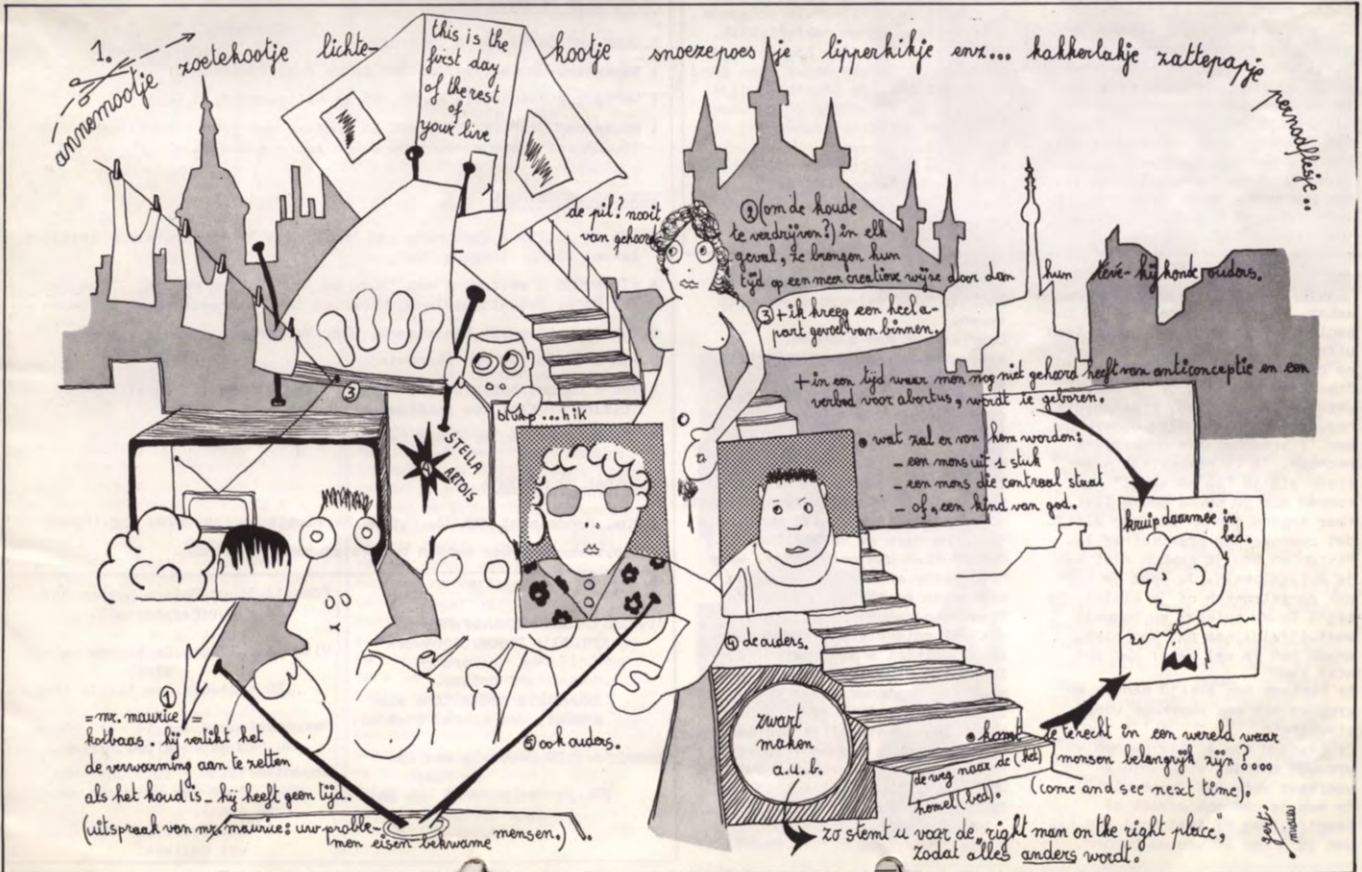 1.
annemootje zoetekootje lichte- kootje snoezepoesje lipperkikje enz... kakkerlakje zattepapje pernodflesje..
this is the
first day
of the rest
of
your live
de pil? nooit
van gehoord
② (om de koude
te verdrijven?) in elk
geval, ze brengen hun
tijd op een meer creatieve wijze door dan hun tévé-kijkende ouders.
③ + ik kreeg een heel a-
part gevoel van binnen.
+ in een tijd waar men nog niet gehoord heeft van anticonceptie en een
verbod voor abortus, wordt ie geboren.
• wat zal er van hem worden:
- een mens uit 1 stuk
- een mens die centraal staat
- of, een kind van god.
kruip daarmee in
bed.
③
blurp...hik
4
STELLA
ARTOIS
④ de ouders.
⑤ ook ouders.
①
= mr. maurice =
kotbaas. hij vertikt het
de verwarming aan te zetten
als het koud is - hij heeft geen tijd.
(uitspraak van mr. maurice: uw proble-
men eisen bekwame mensen.)
zwart
maken
a.u.b.
• komt ie terecht in een wereld waar
mensen belangrijk zijn?....
(come and see next time).
de weg naar de (het)
hemel (bed).
zo stemt u voor de "right man on the right place",
zodat alles anders wordt.
gert.